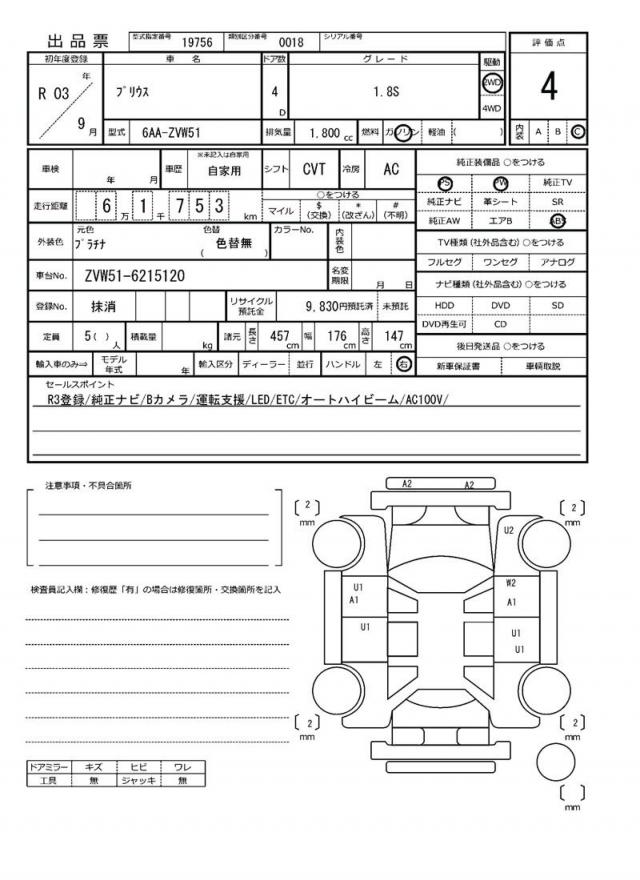 出品票 型式指定番号 19756 類別区分番号 0018 シリアル番号
評価点
4
内装 A B C
初年度登録 車名 ドア数 グレード 駆動
R 03 年 9 月 プリウス 4 D 1.8S 2WD 4WD
型式 6AA-ZVW51 排気量 1.800 cc 燃料 ガソリン 軽油 ( )
車検 年 月 車歴 ※未記入は自家用 自家用 シフト CVT 冷房 AC
走行距離 6 万 1 千 7 5 3 km
○をつける
マイル $ (交換) * (改ざん) # (不明)
外装色 元色 プラチナ 色替 色替無 ( ) カラーNo. 内装色
車台No. ZVW51-6215120 名変期限 月 日
登録No. 抹消 リサイクル預託金 9,830円預託済 未預託
定員 5( )人 積載量 kg 諸元 長さ 457 cm 幅 176 cm 高さ 147 cm
輸入車のみ⇒ モデル年式 年 輸入区分 ディーラー 並行 ハンドル 左 右
純正装備品 ○をつける
PS PW 純正TV
純正ナビ 革シート SR
純正AW エアB ABS
TV種類 (社外品含む) ○をつける
フルセグ ワンセグ アナログ
ナビ種類 (社外品含む) ○をつける
HDD DVD SD
DVD再生可 CD
後日発送品 ○をつける
新車保証書 車輌取説
セールスポイント
R3登録/純正ナビ/Bカメラ/運転支援/LED/ETC/オートハイビーム/AC100V/
注意事項・不具合箇所
検査員記入欄：修復歴「有」の場合は修復箇所・交換箇所を記入
ドアミラー キズ ヒビ ワレ
工具 無 ジャッキ 無
A2 A2
[ 2 ] mm [ 2 ] mm
U2
U1 W2
A1 A1
U1 U1
U1
[ 2 ] mm [ 2 ] mm
[ ] mm